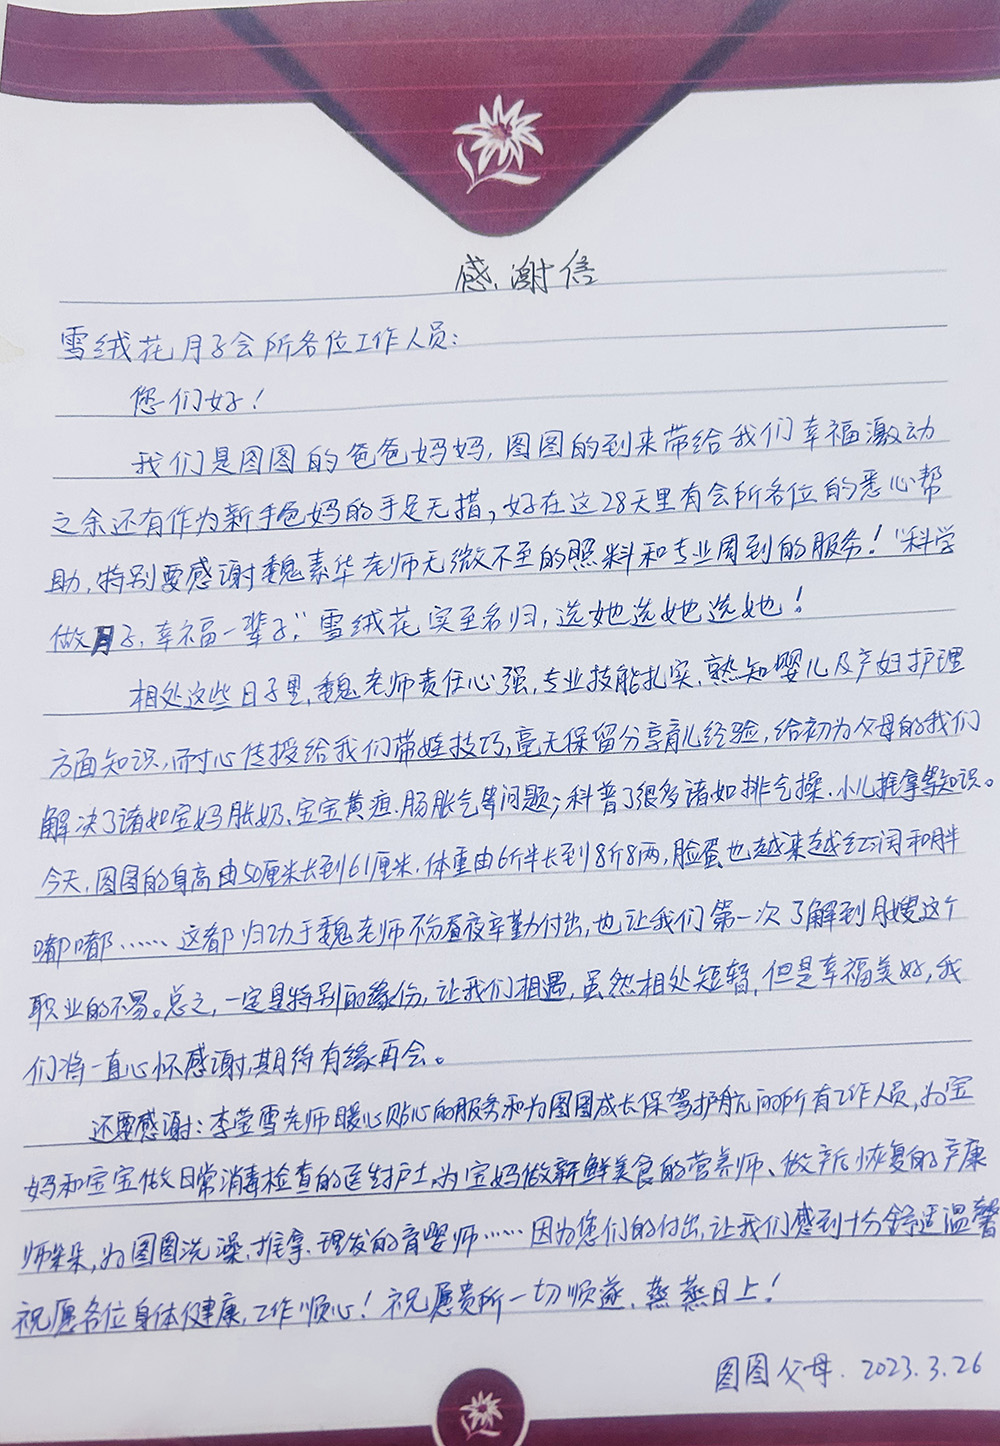 感谢信
雪绒花月子会所各位工作人员:
您们好!
我们是图图的爸爸妈妈,图图的到来带给我们幸福激动
之余还有作为新手爸妈的手足无措,好在这28天里有会所各位的悉心帮
助,特别要感谢魏素华老师无微不至的照料和专业周到的服务!“科学
做月子,幸福一辈子,”雪绒花实至名归,选她选她选她!
相处这些日子里,魏老师责任心强,专业技能扎实,熟知婴儿及产妇护理
方面知识,耐心传授给我们带娃技巧,毫无保留分享育儿经验,给初为父母的我们
解决了诸如宝妈胀奶、宝宝黄疸、肠胀气等问题;科普了很多诸如排气操、小儿推拿等知识。
今天,图图的身高由50厘米长到61厘米,体重由6斤半长到8斤8两,脸蛋也越来越红润和胖
嘟嘟……这都归功于魏老师不分昼夜辛勤付出,也让我们第一次了解到月嫂这个
职业的不易。总之,一定是特别的缘份,让我们相遇,虽然相处短暂,但是幸福美好,我
们将一直心怀感谢,期待有缘再会。
还要感谢:李莹雪老师暖心贴心的服务和为图图成长保驾护航的所有工作人员,为宝
妈和宝宝做日常消毒检查的医生护士,为宝妈做新鲜美食的营养师、做产后恢复的产康
师朵朵,为图图洗澡、推拿、理发的育婴师……因为您们的付出,让我们感到十分舒适温馨
祝愿各位身体健康,工作顺心!祝愿贵所一切顺遂、蒸蒸日上!
图图父母.2023.3.26